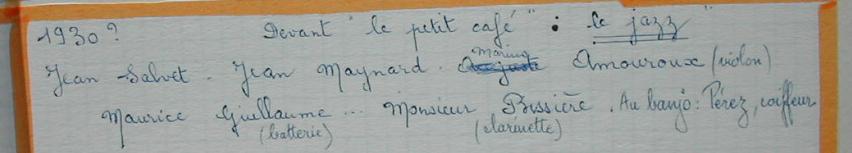 1930? Devant "le petit café" : le jazz"
Jean Salvet. Jean Maynard. Amouroux (violon)
Maurice Guillaume... Monsieur Bussière. Au banjo: Pérez, coiffeur
(batterie) (clarinette)